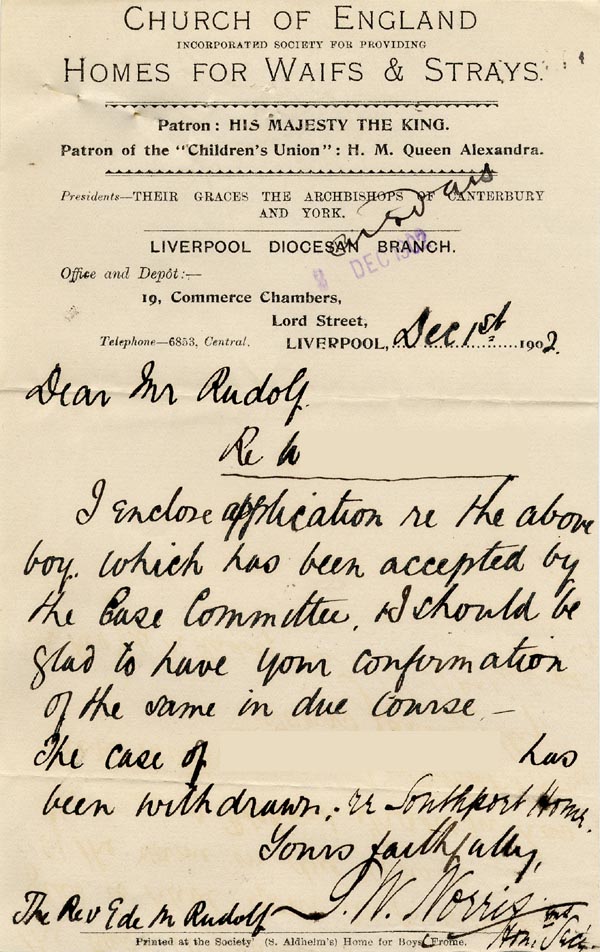 CHURCH OF ENGLAND
INCORPORATED SOCIETY FOR PROVIDING
HOMES FOR WAIFS & STRAYS.
Patron: HIS MAJESTY THE KING.
Patron of the "Children's Union": H. M. Queen Alexandra.
Presidents—THEIR GRACES THE ARCHBISHOPS OF CANTERBURY
AND YORK.
LIVERPOOL DIOCESAN BRANCH.
DEC 1902
Office and Depôt:—
19, Commerce Chambers,
Lord Street,
Telephone—6853, Central. LIVERPOOL, Dec 1st 1902.
Dear Mr Rudolf.
Re
I enclose application re the above
boy. which has been accepted by
the Case Committee, & I should be
glad to have your confirmation
of the same in due course —
The case of has
been withdrawn, re Southport Home.
Yours faithfully,
The Rev E de M Rudolf J. W. Norris
Hon. Sec.
Printed at the Society' (S. Aldhelm's) Home for Boys, Frome.